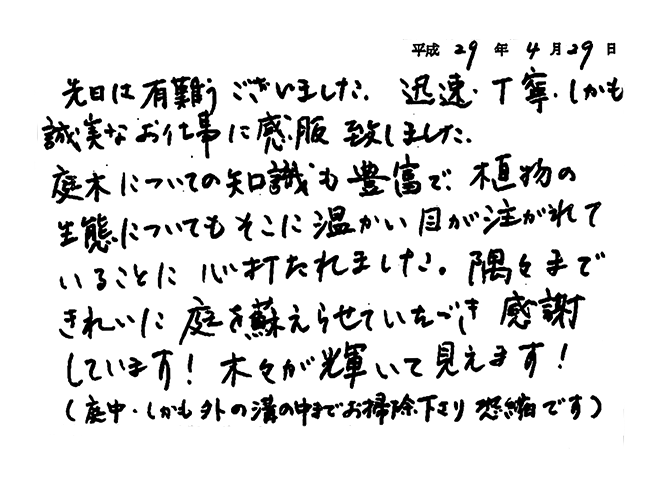 平成 29 年 4 月 29 日
先日は有難うございました. 迅速・丁寧・しかも
誠実なお仕事に感服致しました.
庭木についての知識も豊富で、植物の
生態についてもそこに温かい目が注がれて
いることに心打たれました。隅々まで
きれいに庭を蘇えらせていただき感謝
しています！木々が輝いて見えます！
（庭中・しかも外の溝の中までお掃除下さり恐縮です）